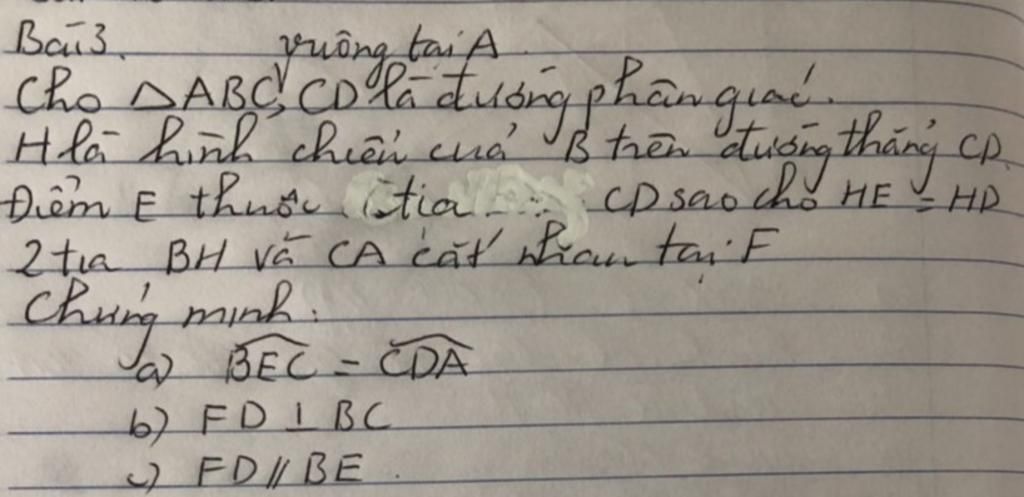 Bài 3. vuông tại A
Cho △ABC, CD là đường phân giác.
H là hình chiếu của B trên đường thẳng CD
Điểm E thuộc tia CD sao cho HE = HD
2 tia BH và CA cắt nhau tại F
Chứng minh:
a) \widehat{BEC} = \widehat{CDA}
b) FD ⊥ BC
c) FD // BE.